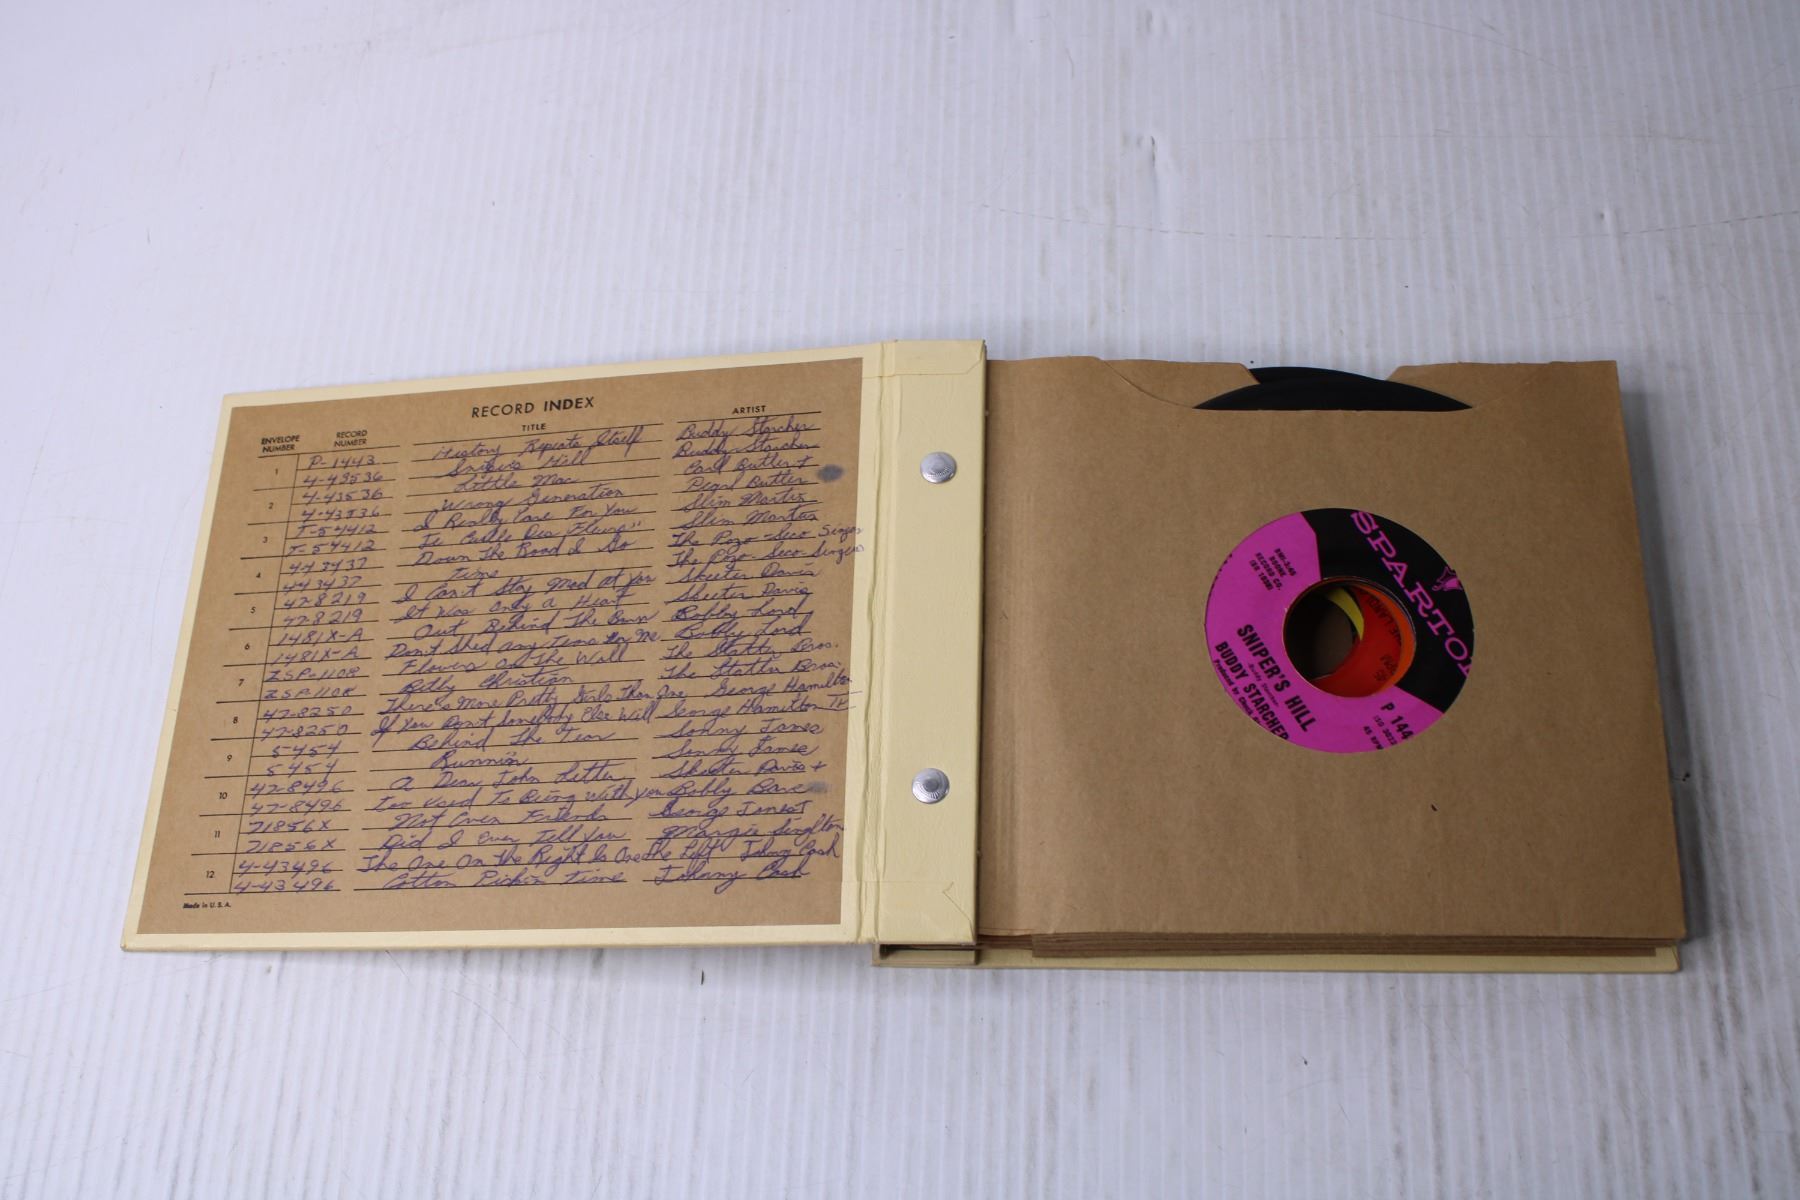 RECORD INDEX
ENVELOPE NUMBER RECORD NUMBER TITLE ARTIST
1 P-1443 History Repeats Itself Buddy Starcher
Snipers Hill Buddy Starcher
2 4-43536 Little Mac Carl Butler +
4-43536 Wrong Generation Pearl Butler
3 T-54412 I Really Care For You Slim Martin
T-54412 Te Des Fleurs" Slim Martin
4 443437 Down The Road I Go The Pozo-Seco Singers
443437 Time The Pozo-Seco-Singers
5 47-8219 I Can't Stay Mad at you Skeeter Davis
47-8219 It Was Only a Heart Skeeter Davis
6 1481X-A Out Behind The Barn Bobby Lord
1481X-A Don't Shed any tears for me Bobby Lord
7 ZSP-1108 Flowers On The Wall The Statler Bros.
ZSP-1108 Billy Christian The Statler Bros.
8 47-8250 There's More Pretty Girls Than One George Hamilton
47-8250 If You Don't Somebody Else Will George Hamilton IV
9 5454 Behind The Tear Sonny James
5454 Runnin Sonny James
10 47-8496 A Dear John Letter Skeeter Davis +
47-8496 Too Used To Being With you Bobby Bare
11 71856X Not Even Friends George Jones +
71856X Did I Ever Tell You Margie Singleton
12 4-43496 The One On The Right Is On The Left Johnny Cash
4-43496 Cotton Pickin Time Johnny Cash
Made in U.S.A.
SPARTO
SNIPER'S HILL
Buddy Starcher
BUDDY STARCHER
P 144
45 RPM